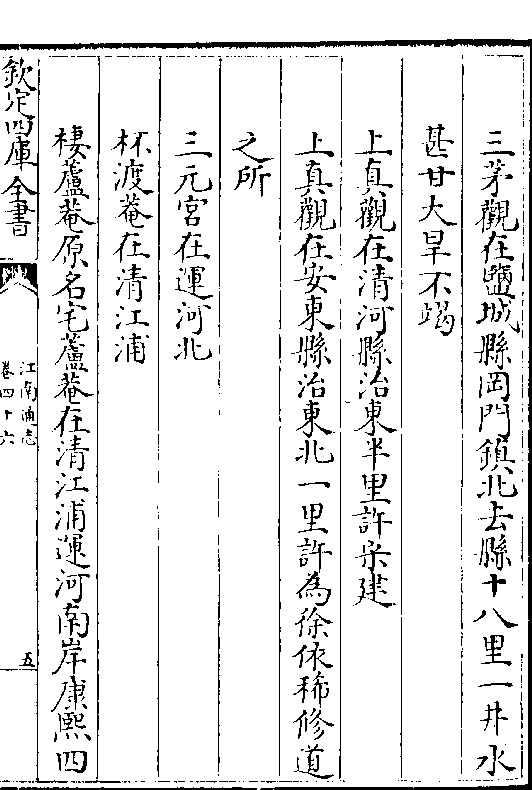 三茅觀在鹽城縣岡門鎮北去縣十八里一井水
甚甘大旱不竭
上真觀在清河縣治東半里許宋建
上真觀在安東縣治東北一里許為徐依稀修道
之所
三元宮在運河北
杯渡菴在清江浦
棲蘆菴原名宅蘆菴在清江浦運河南岸康熙四
欽定四庫全書
江南通志
卷四十六
五